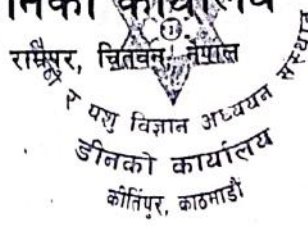 कार्यालय
रामपुर, चितवन, नेपाल
र पशु विज्ञान अध्ययन संस्थान
डीनको कार्यालय
कीर्तिपुर, काठमाडौं